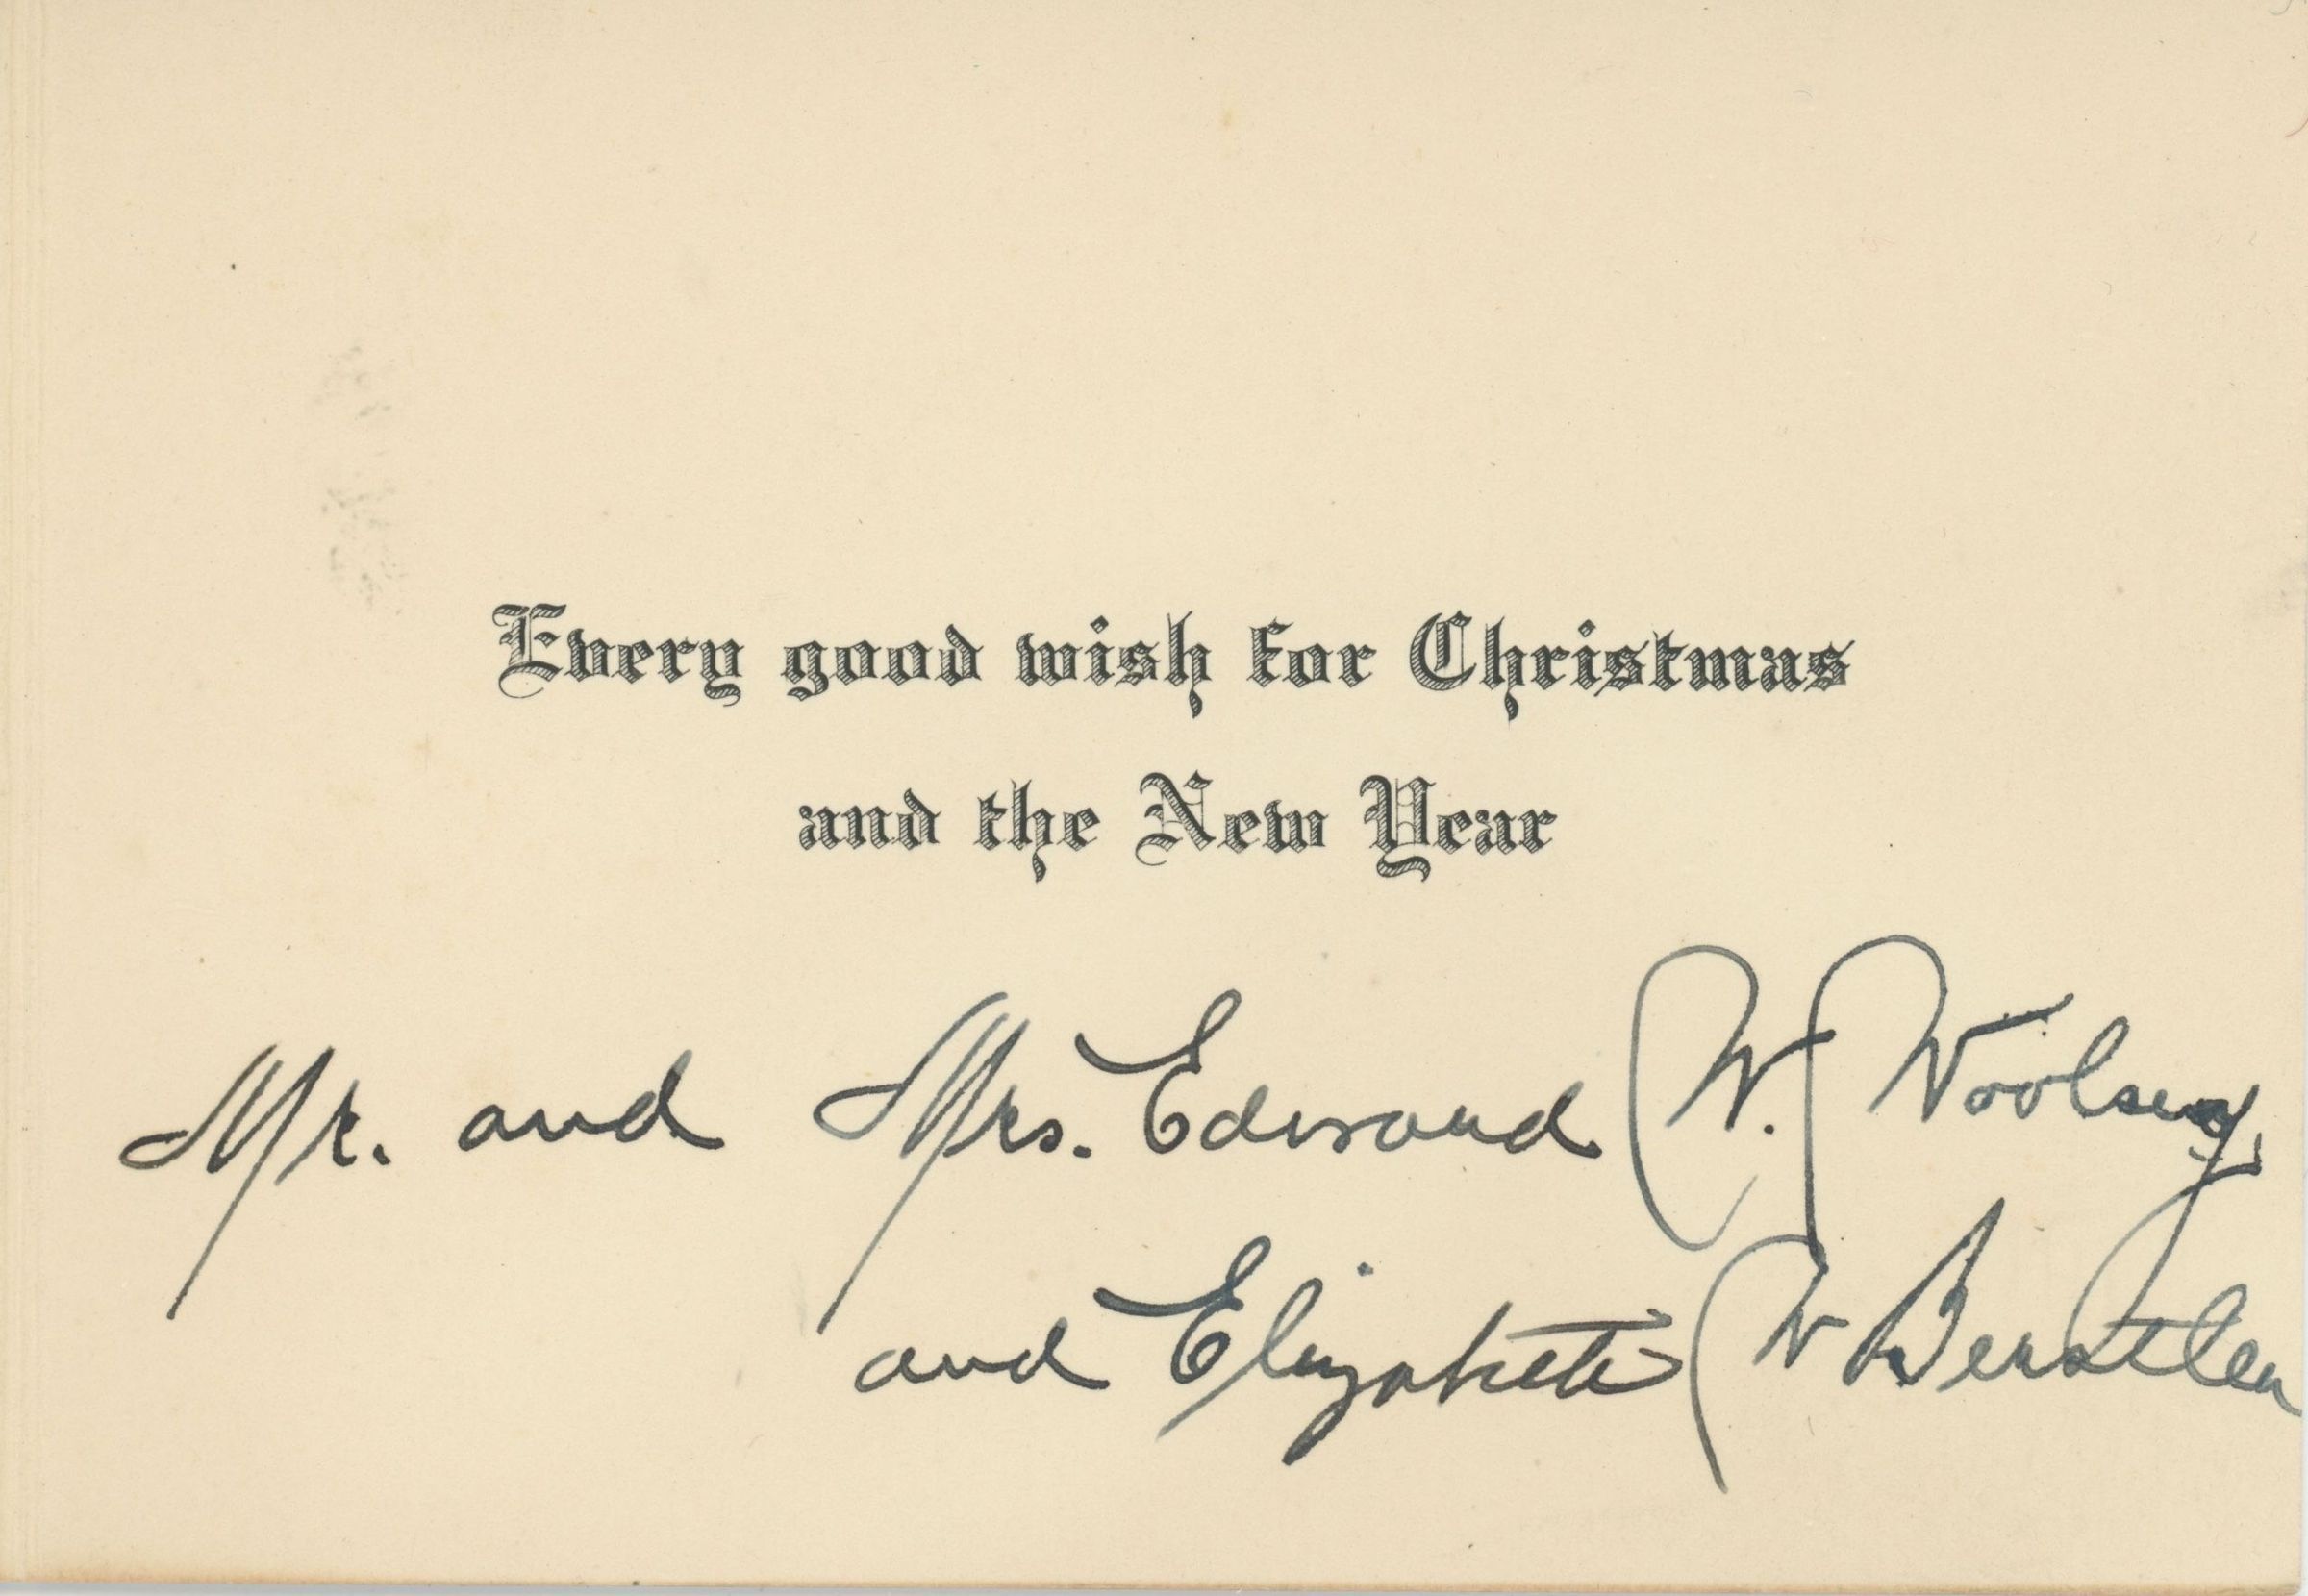 Every good wish for Christmas
and the New Year
Mr. and Mrs. Edward W. Woolsey
and Elizabeth W